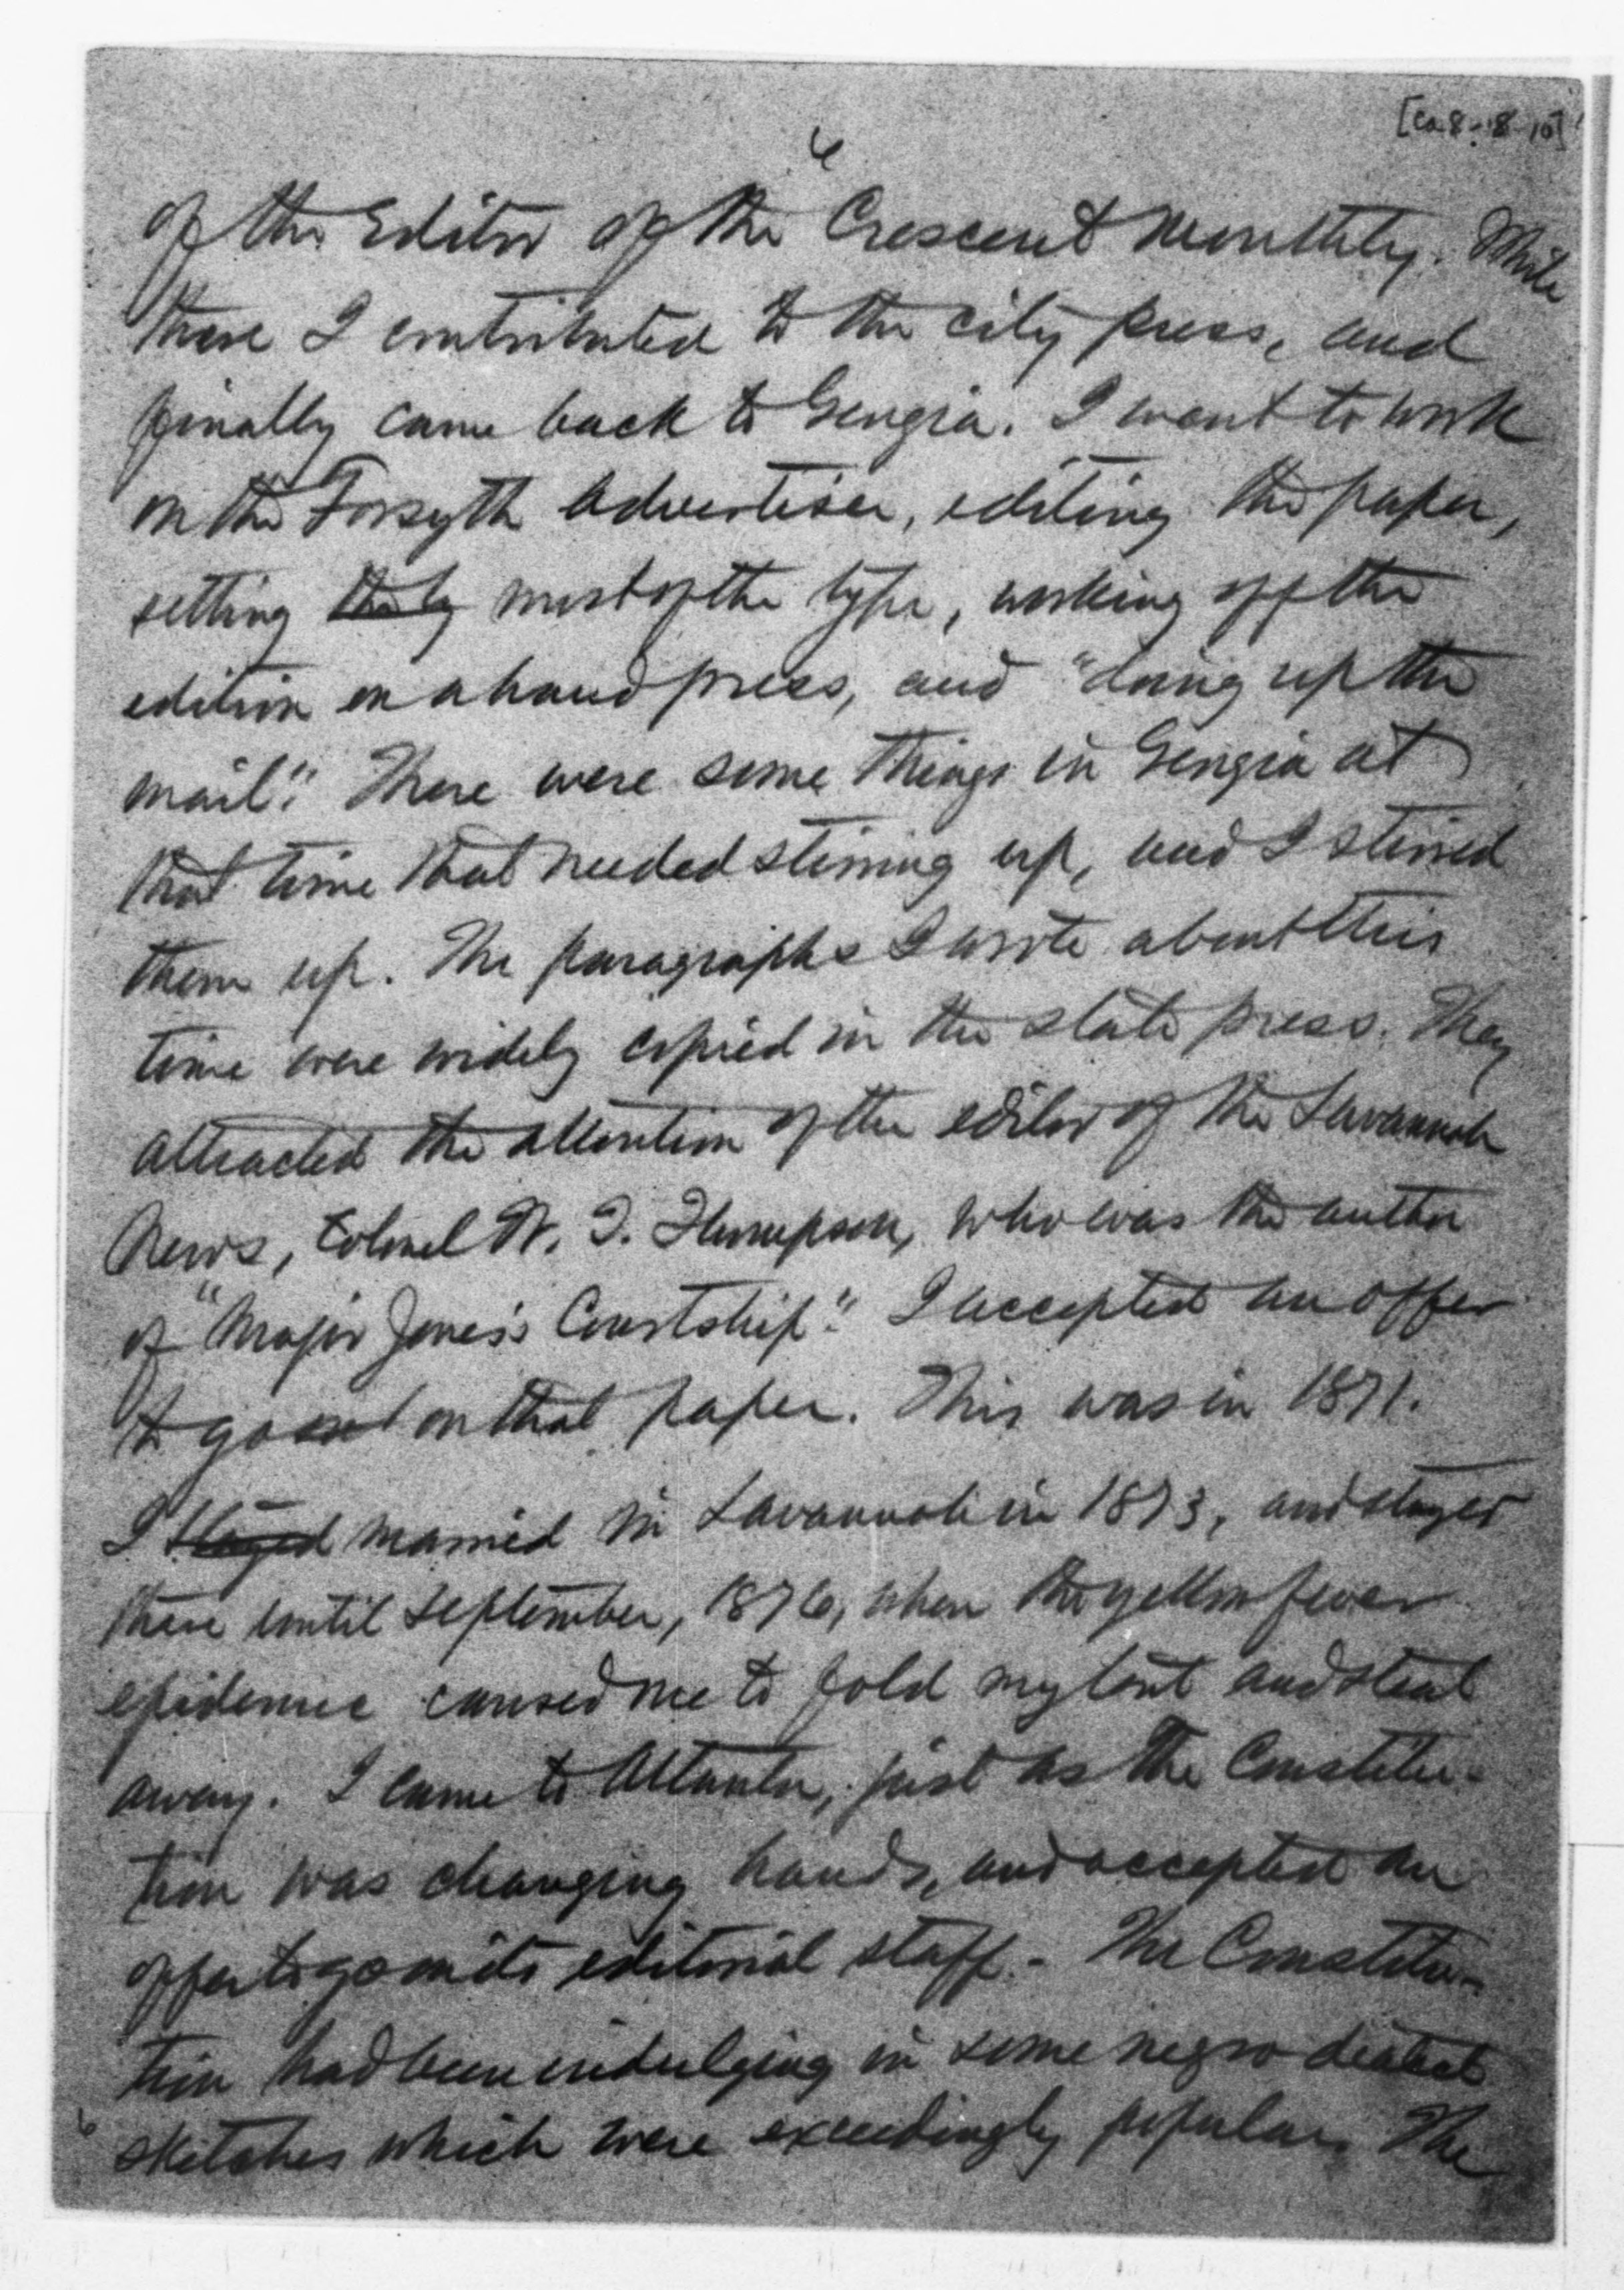 6
of the Editor of the Crescent Monthly. While
there I contributed to the city press, and
finally came back to Georgia. I went to work
on the Forsyth Advertiser, editing the paper,
setting most of the type, working off the
edition on a hand press, and "doing up the
mail." There were some things in Georgia at
that time that needed stirring up, and I stirred
them up. The paragraphs I wrote about this
time were widely copied in the state press. They
attracted the attention of the editor of the Savannah
News, Colonel W. T. Thompson, who was the author
of "Major Jones's Courtship." I accepted an offer
to go on that paper. This was in 1871.
I staged married in Savannah in 1873, and stayed
there until September, 1876, when the yellow fever
epidemic caused me to fold my tent and steal
away. I came to Atlanta, just as The Constitu-
tion was changing hands, and accepted an
offer to go on its editorial staff. - The Constitu-
tion had been indulging in some negro dialect
sketches which were exceedingly popular. The